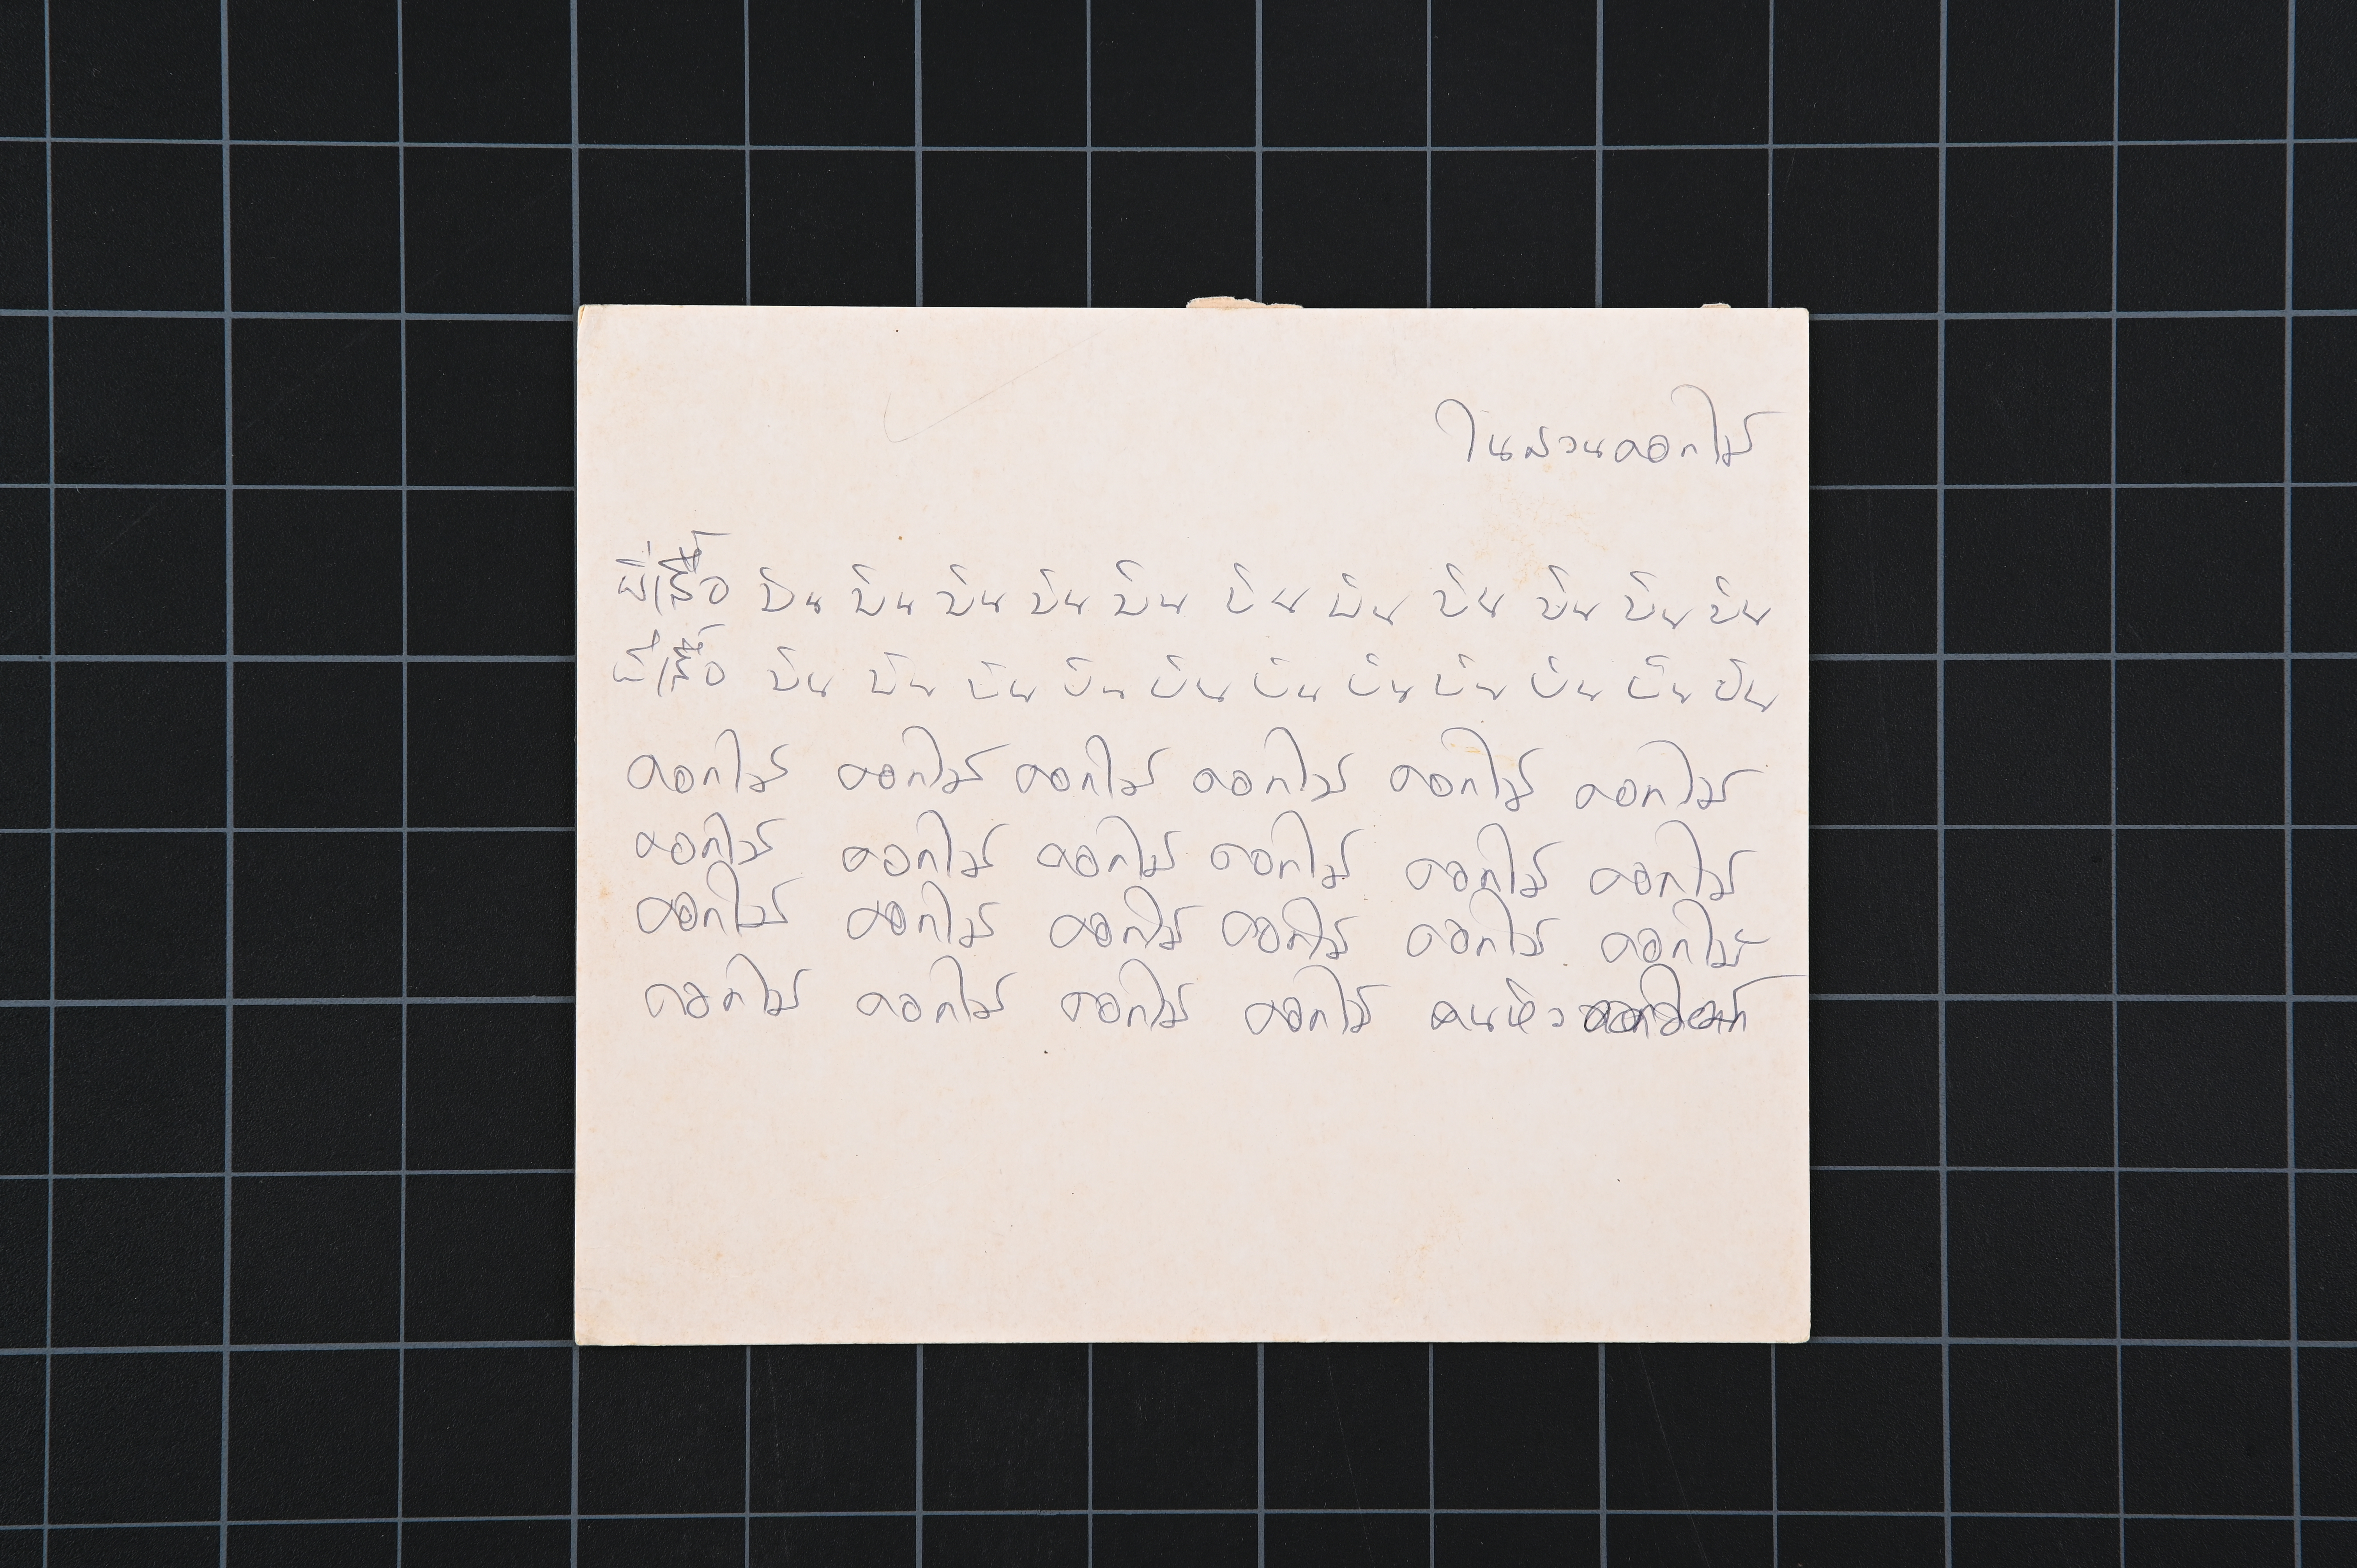 ในสวนดอกไม้
ผีเสื้อ บิน บิน บิน บิน บิน บิน บิน บิน บิน บิน บิน
ผีเสื้อ บิน บิน บิน บิน บิน บิน บิน บิน บิน บิน บิน
ดอกไม้ ดอกไม้ ดอกไม้ ดอกไม้ ดอกไม้ ดอกไม้
ดอกไม้ ดอกไม้ ดอกไม้ ดอกไม้ ดอกไม้ ดอกไม้
ดอกไม้ ดอกไม้ ดอกไม้ ดอกไม้ ดอกไม้ ดอกไม้
ดอกไม้ ดอกไม้ ดอกไม้ ดอกไม้ คนหิว